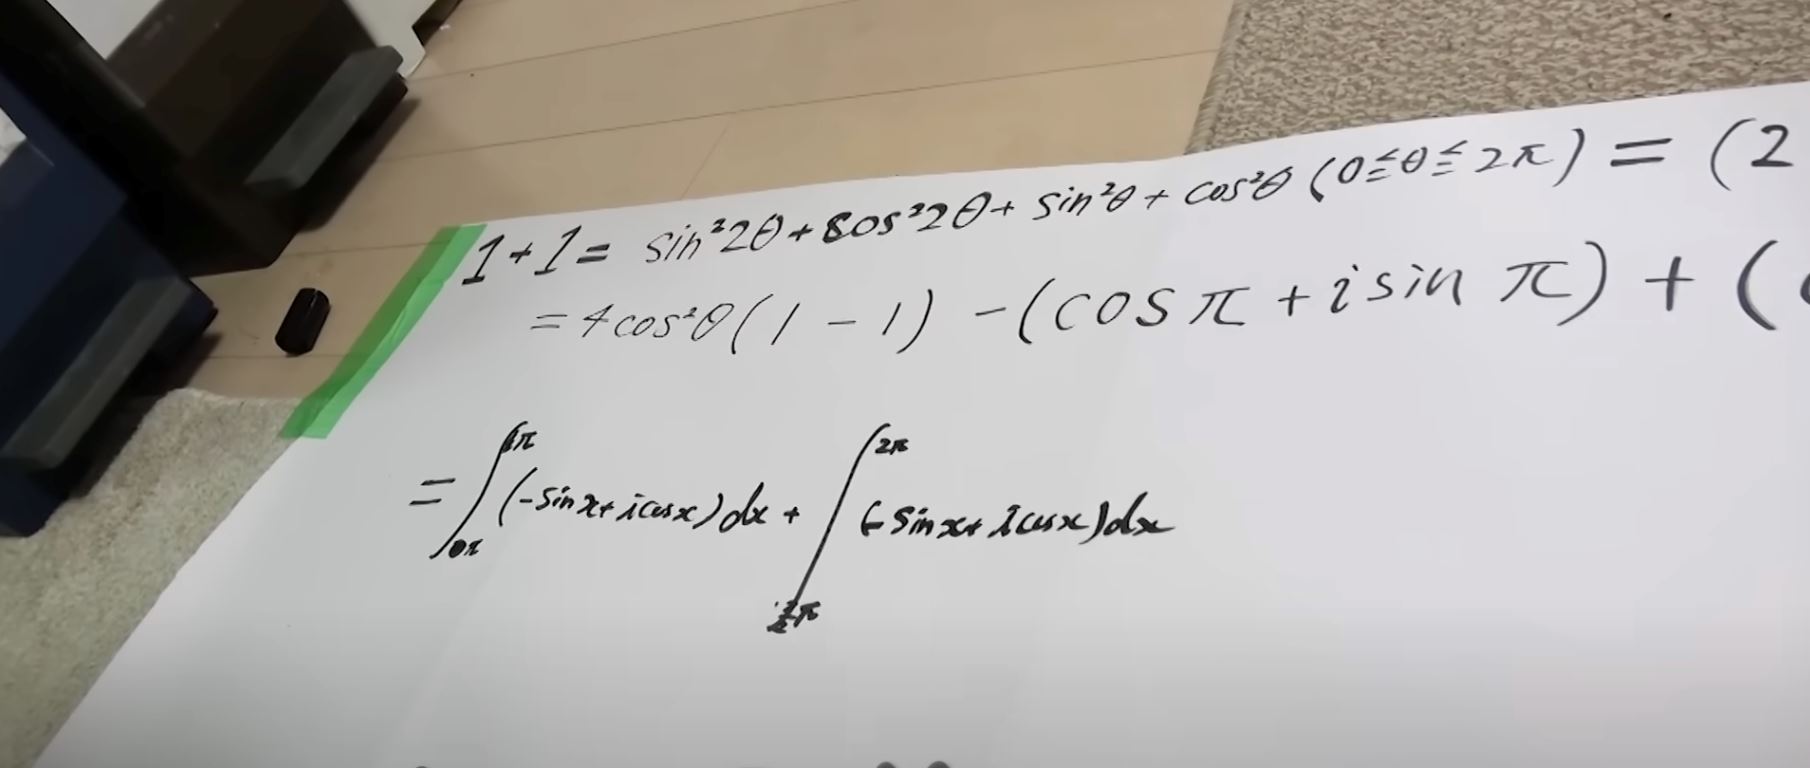 1+1= sin²2θ+cos²2θ+ sin²θ + cos²θ (0≦θ≦2π) = (2
=4cos²θ(1-1) -(cosπ + i sin π) + (
=∫_{0π}^{1π}(-sinx+icosx)dx + ∫^{2π}(-sinx+icosx)dx